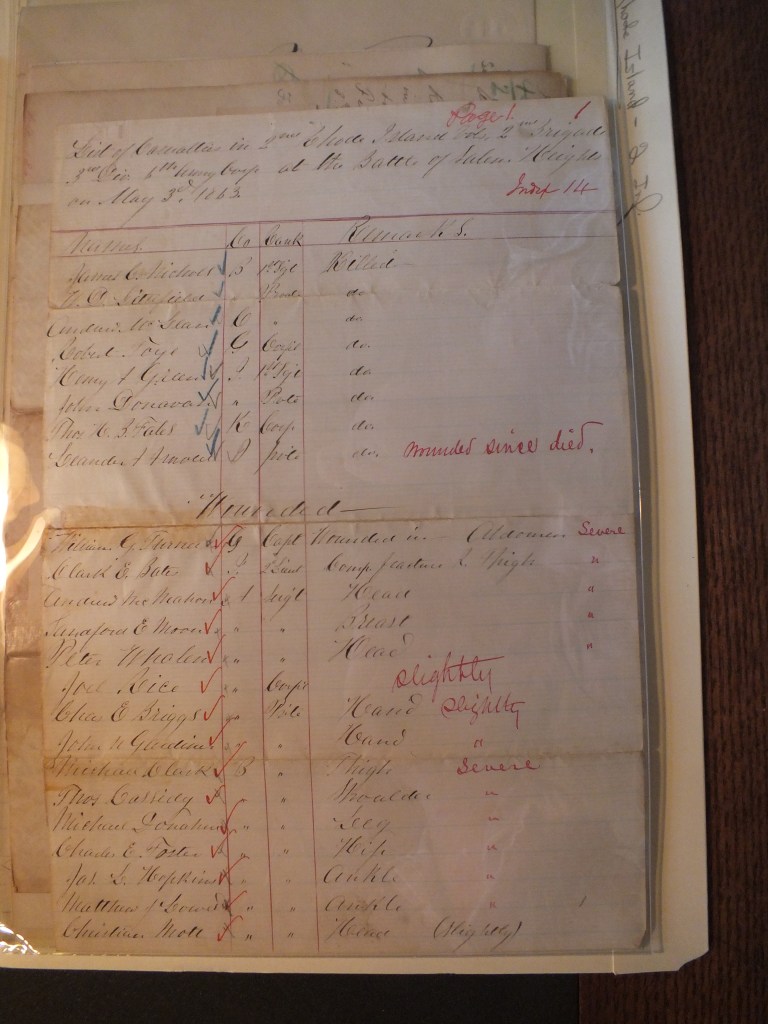 Rhode Island - 2 Inf.
Page 1. 1
List of Casualties in 2nd Rhode Island Vols, 2nd Brigade
3rd Div. 6th Army Corps at the Battle of Salem Heights
on May 3d, 1863.
Index 14
Names. Co Rank Remarks.
James C. Nichols B 1st Sgt Killed
Littlefield " Private do
Andrew McGlan C " do
Robert Foye G Corpl do
Henry A Green I 1st Sgt do
John Donavan " Pvte do
Thos H. B. Fales K Corp do
Leander A Arnold D pvte do. wounded since died.
Wounded
William G. Turner G Capt Wounded in Abdomen Severe
Clark E. Bates 2" Lieut Comp. fracture thigh "
Andrew McMahon A Sergt Head "
E Moon " " Breast "
Peter Whalen " " Head "
Joel Rice " Corpl slightly
Chas E. Briggs " Pvte Hand slightly
John " " Hand "
Michael Clark B " Thigh Severe
Thos Cassidy " " Shoulder "
Michael Donahue " " Leg "
Charles E. Foster " " Hip "
Jas. G. Hopkins " " Ankle "
Matthew " " Ankle "
Christian Mott " " Head (slightly)